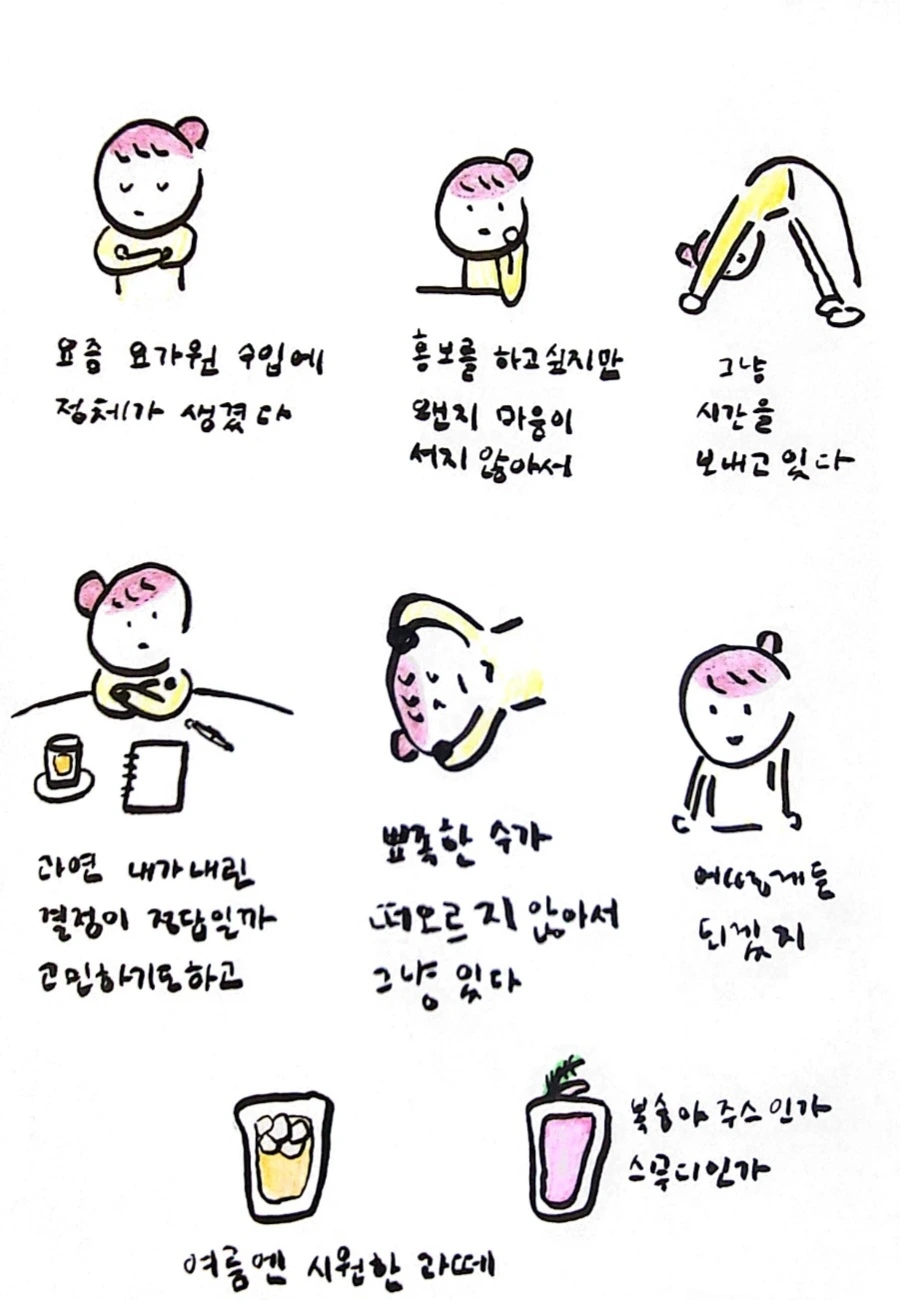 요즘 요가원 수입에
정체가 생겼다
홍보를 하고싶지만
왠지 마음이
서지 않아서
그냥
시간을
보내고 있다
과연 내가 내린
결정이 정답일까
고민하기도하고
뾰족한 수가
떠오르지 않아서
그냥 있다
어떻게든
되겠지
복숭아 주스인가
스무디인가
여름엔 시원한 라떼